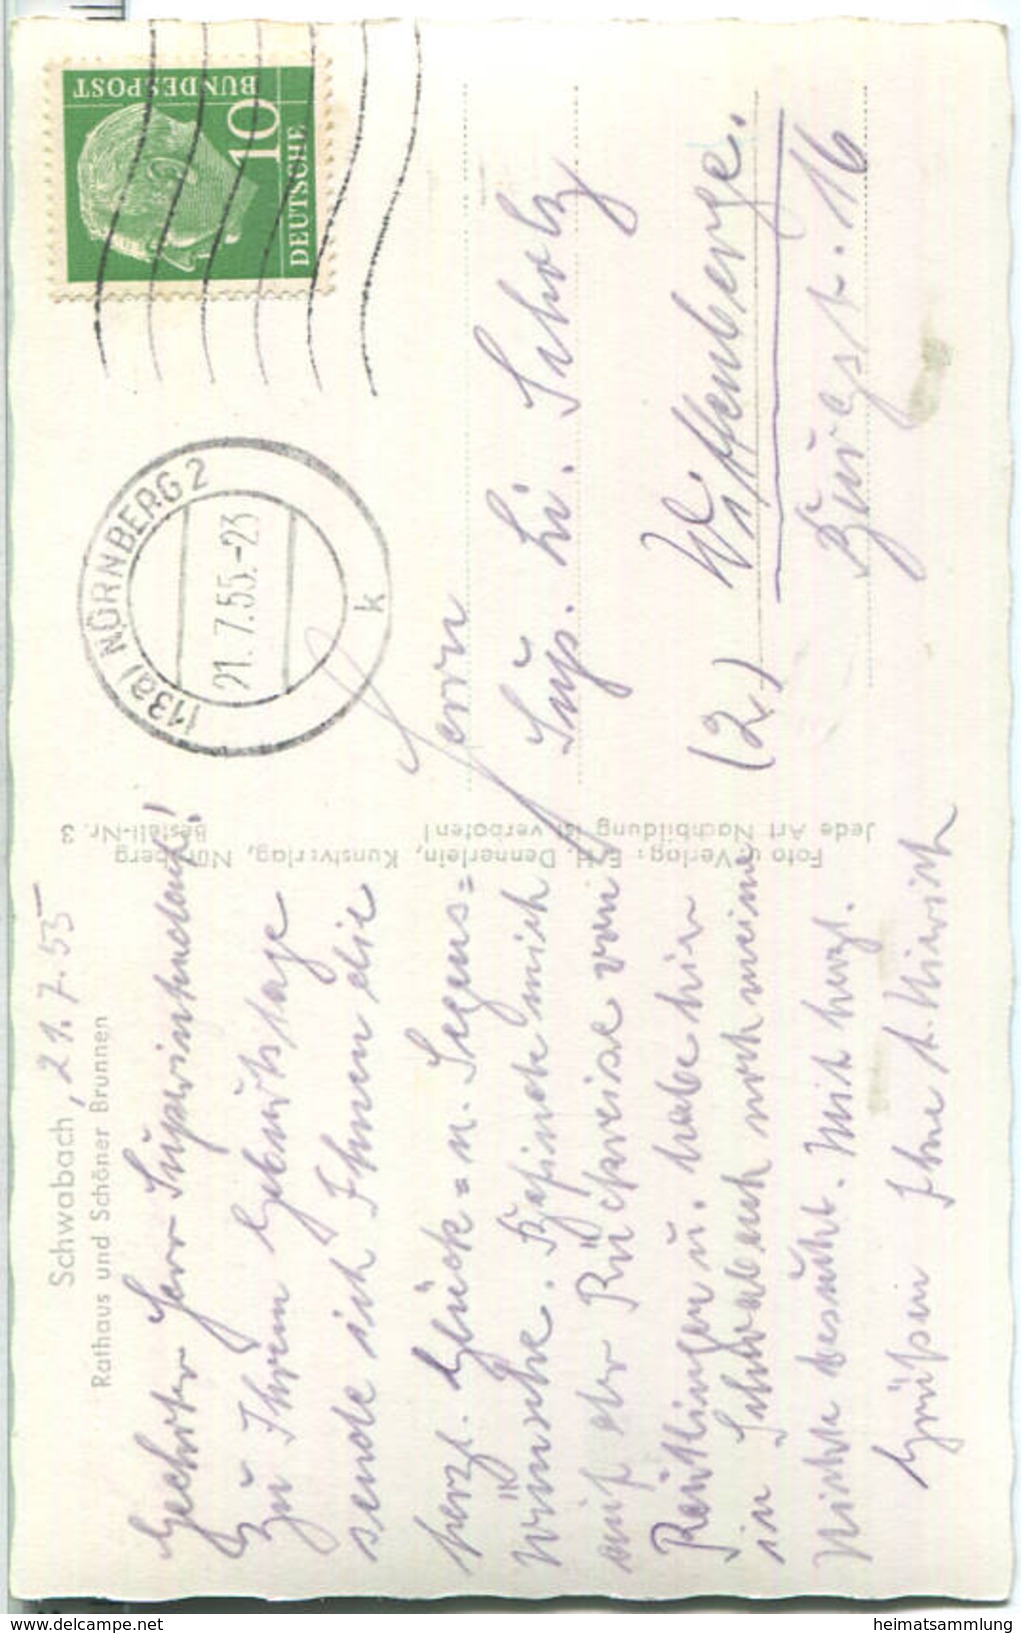 Schwabach, 21.7.55
Rathaus und Schöner Brunnen
Geehrter Herr Superintendent!
Zu Ihrem Geburtstage
sende ich Ihnen die
herzl. Glück= u. Segens=
wünsche. Befinde mich
auf der Rückreise von
Reutlingen u. habe hier
in Schwabach noch meine
Nichte besucht. Mit herzl.
Grüßen Ihre
Foto u. Verlag: Dennerlein, Kunstverlag, Nürnberg
Jede Art Nachbildung ist verboten!
Bestell-Nr. 3
DEUTSCHE
BUNDESPOST
10
(13a) NÜRNBERG 2
21.7.55.-23
k
Herrn
Sup. Li. Scholz
(2) Wittenberge.
Bürgst. 16
heimatsammlung